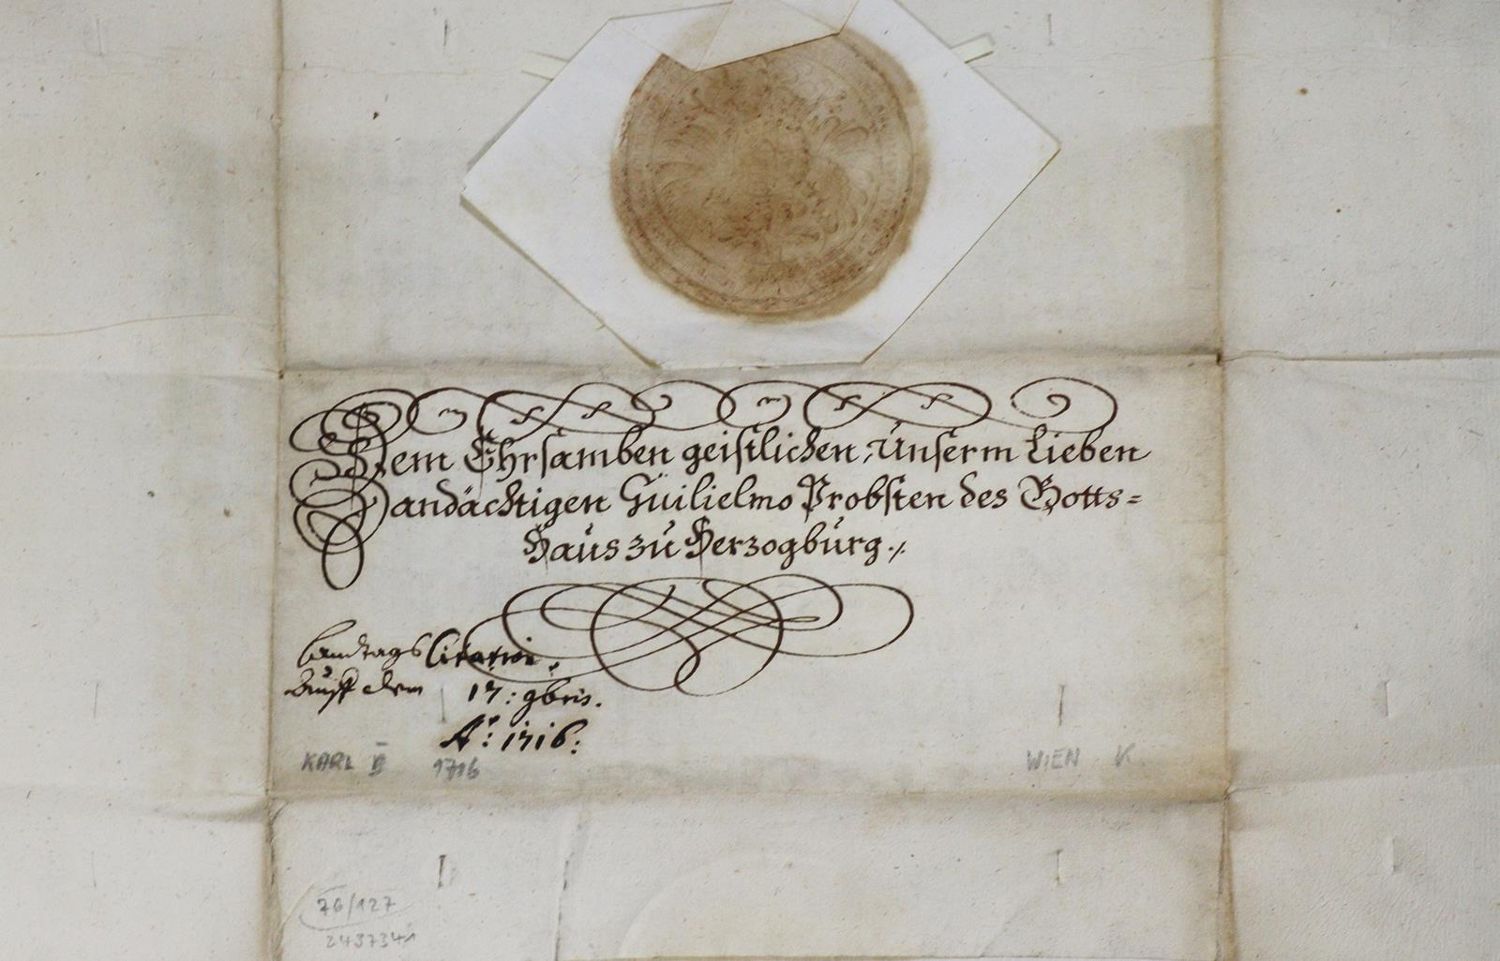 Dem Ehrsamben geistlichen, Unserm Lieben
andächtigen Guilielmo Probsten des Gotts=
Haus zu Herzogburg ./.
Landtags Citation.
Auff den 17: 9bris.
Aº: 1716:
KARL VI 1716 WIEN K
76/127
2437341